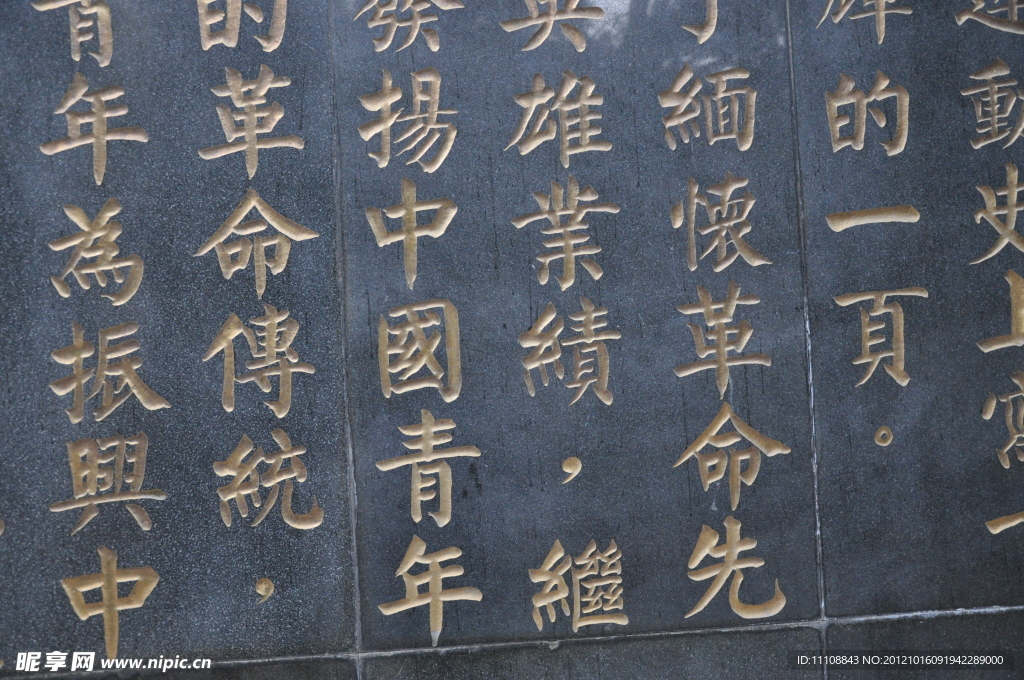 運動史上寫一
輝的一頁。
了緬懷革命先
英雄業績，繼
發揚中國青年
的革命傳統，
青年為振興中
昵享网 www.nipic.cn
ID:11108843 NO:20121016091942289000